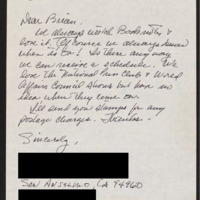 Dear Brian,
We always watch Booknotes &
love it. Of course we always
when its on! Is there any way
we can receive a schedule. We
love the National Press Club & World
Affairs Council shows but have no
idea when they come on.
I'll send you stamps for any
postage charges. Thanks.
Sincerely,
San Anselmo, CA 94960